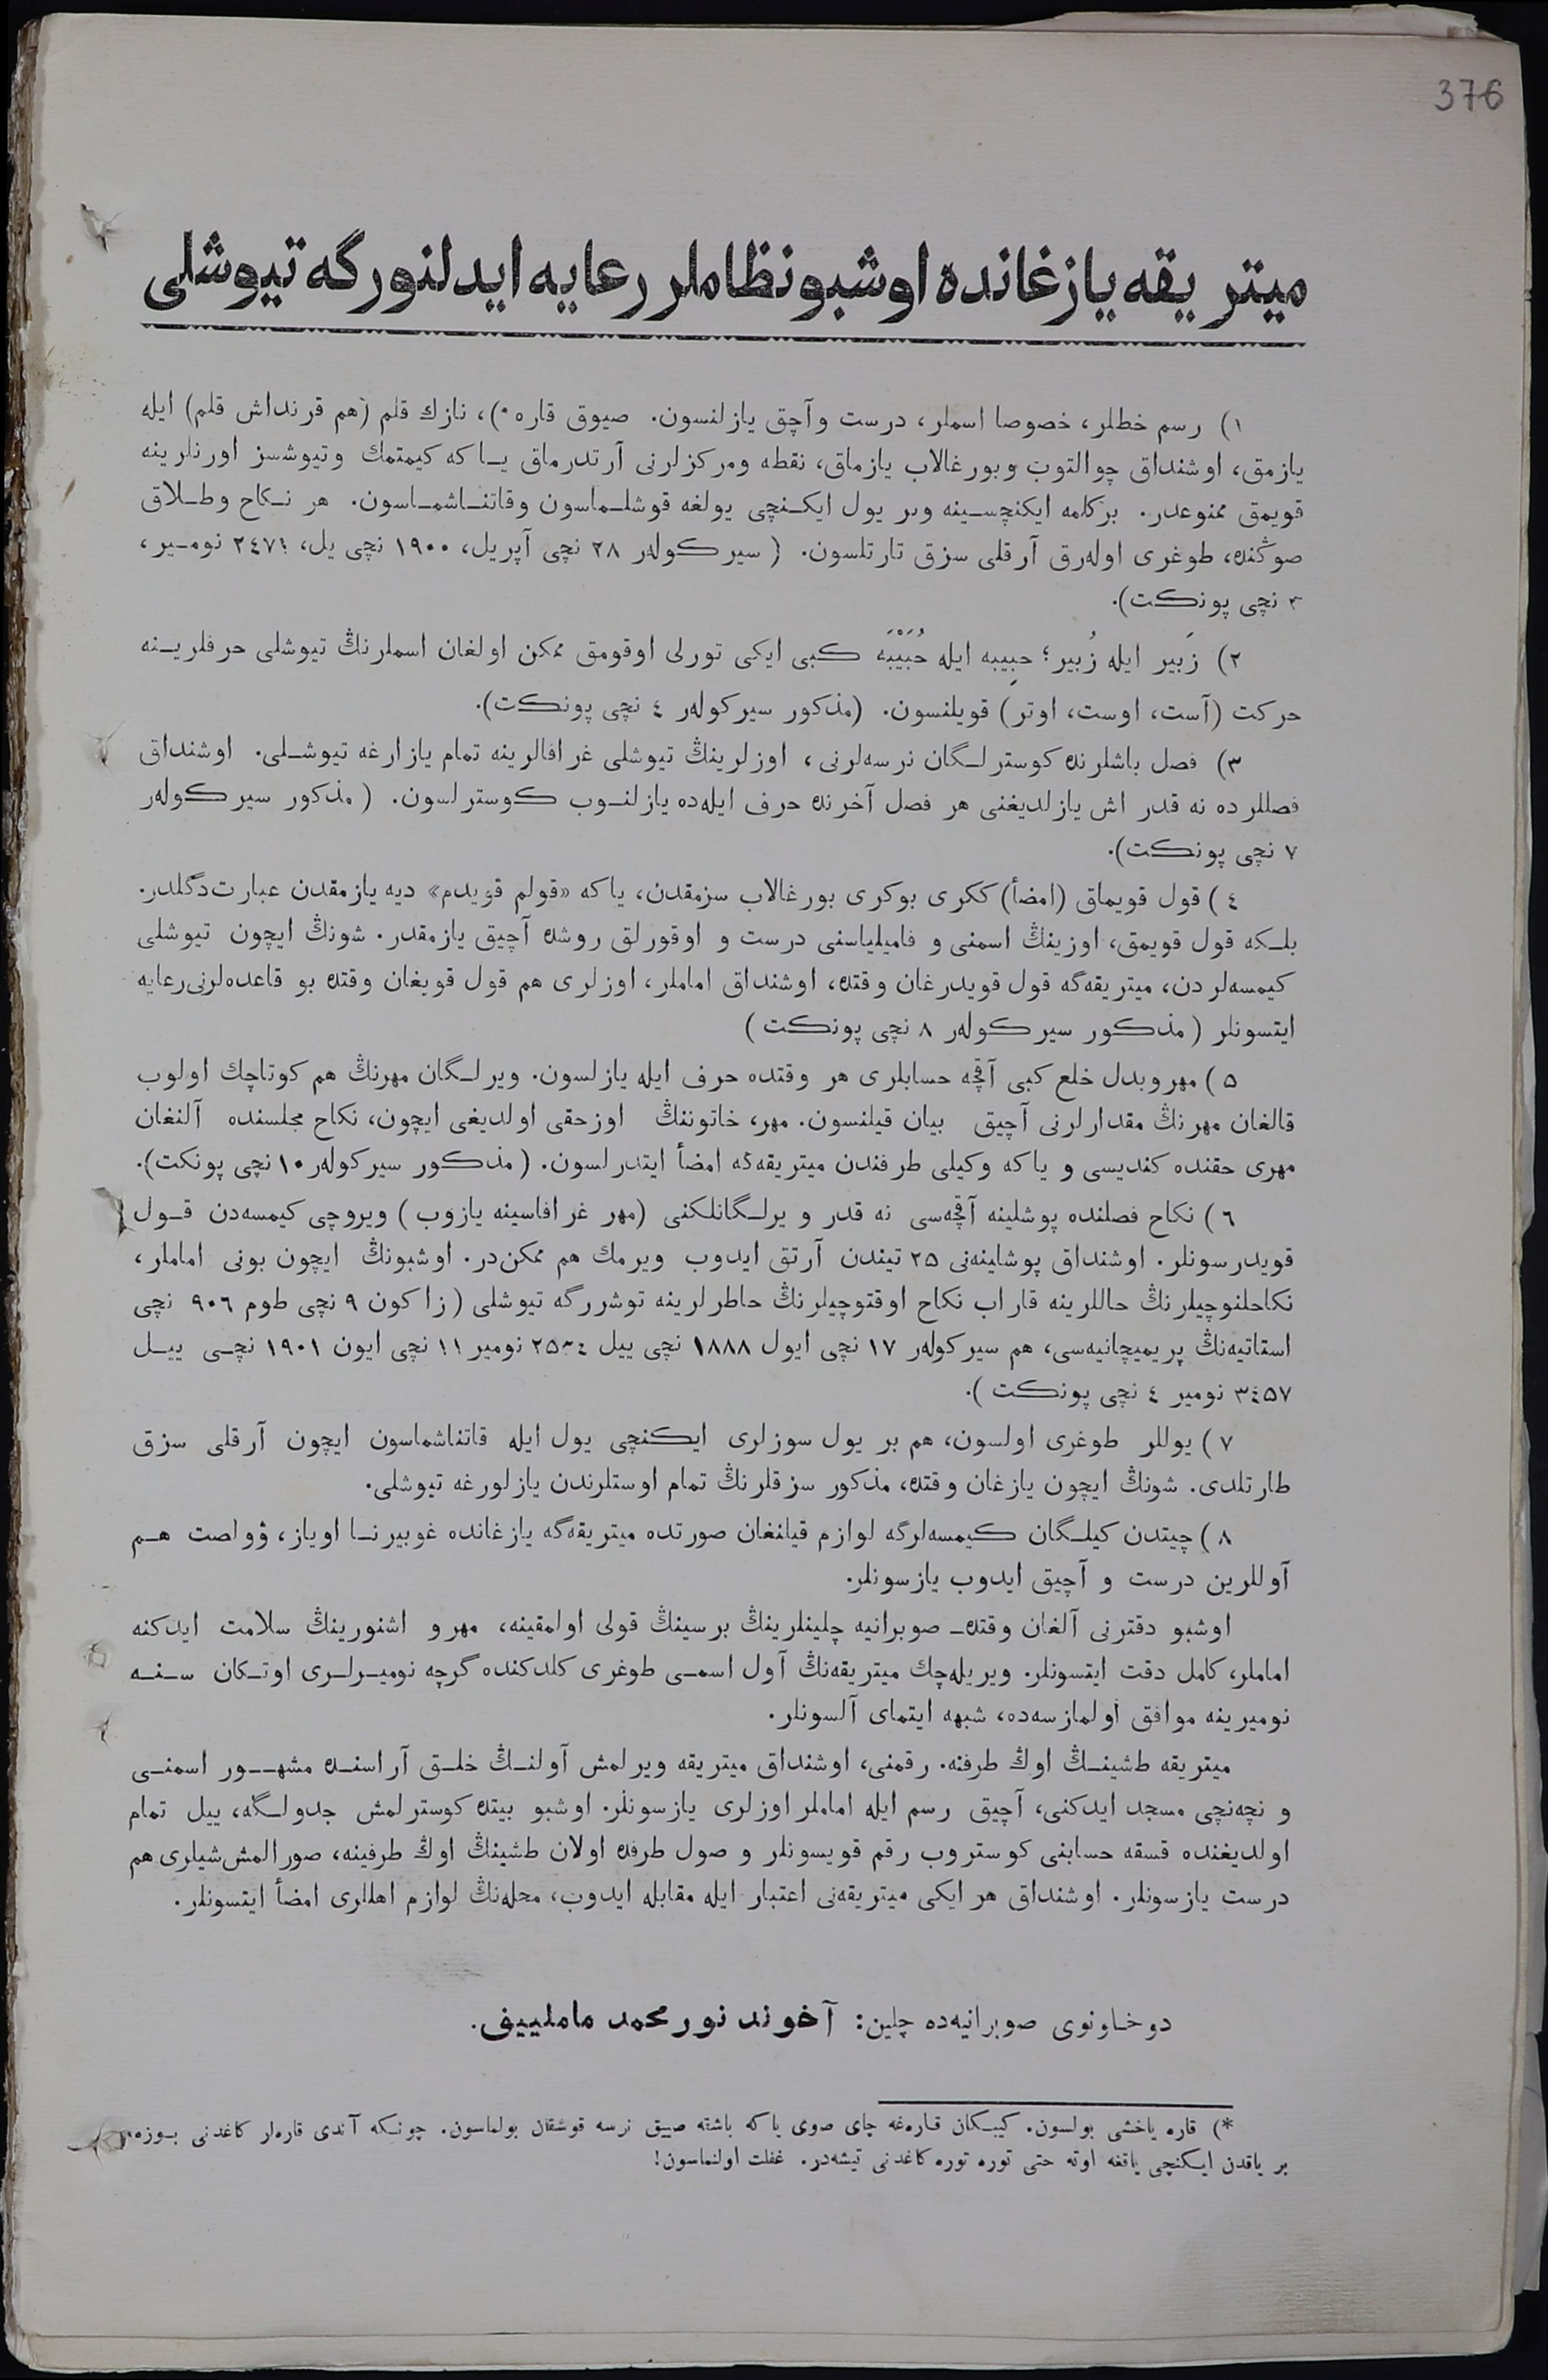 376
میتریقه یازغانده اوشبو نظاملر رعایه ایدلنورگه تیوشلی
١) رسم خطلر، خصوصا اسملر، درست وآچق یازلنسون. صیوق قاره*)، نازك قلم (هم قرنداش قلم) ایله
یازمق، اوشنداق چوالتوب وبورغالاب یازماق، نقطه ومرکزلرنی آرتدرماق یـاکه کیمتمك وتیوشسز اورنلرینه
قویمق ممنوعدر. برکلمه ایکنچسـینه وبر یول ایکـنچی یولغه قوشلـماسون وقاتنـاشمـاسون. هر نـکاح وطـلاق
صوڭنده، طوغری اوله‌رق آرقلی سزق تارتلسون. (سیرکولەر ٢٨ نچی آپریل، ١٩٠٠ نچی یل، ٢٤٧١ نومـیر،
٣ نچی پونکت).
٢) زَبیر ایله زُبیر؛ حبِیبه ایله حُبَیْبَه کبی ایکی تورلی اوقومق ممکن اولغان اسملرنڭ تیوشلی حرفلریـنه
حرکت (آست، اوست، اوتر) قویلنسون. (مذکور سیرکولەر ٤ نچی پونکت).
٣) فصل باشلرنده کوسترلـگان نرسه‌لرنی، اوزلرینڭ تیوشلی غرافالرینه تمام یازارغه تیوشـلی. اوشنداق
فصللرده نه قدر اش یازلدیغنی هر فصل آخرنده حرف ایله‌ده یازلنـوب کوسترلسون. (مذکور سیرکولەر
٧ نچی پونکت).
٤) قول قویماق (امضأ) ککری بوکری بورغالاب سزمقدن، یاکه «قولم قویدم» دیه یازمقدن عبارت‌دگلدر.
بلـکه قول قویمق، اوزینڭ اسمنی و فامیلیاسنی درست و اوقورلق روشده آچیق یازمقدر. شونڭ ایچون تیوشلی
کیمسه‌لردن، میتریقه‌گه قول قویدرغان وقتده، اوشنداق اماملر، اوزلری هم قول قویغان وقتده بو قاعده‌لرنی‌رعایه
ایتسونلر (مذکور سیرکولەر ٨ نچی پونکت)
٥) مهروبدل خلع کبی آقچه حسابلری هر وقتده حرف ایله یازلسون. ویرلـگان مهرنڭ هم کوتاچك اولوب
قالغان مهرنڭ مقدارلرنی آچیق بیان قیلنسون. مهر، خاتوننڭ اوزحقی اولدیغی ایچون، نکاح مجلسنده آلنغان
مهری حقنده کندیسی و یاکه وکیلی طرفندن میتریقه‌گه امضأ ایتدرلسون. (مذکور سیرکولەر ١٠ نچی پونکت).
٦) نکاح فصلنده پوشلینه آقچه‌سی نه قدر و یرلـگانلکنی (مهر غرافاسینه یازوب) ویروچی کیمسه‌دن قـول
قویدرسونلر. اوشنداق پوشلینه‌نی ٢٥ تیندن آرتق ایدوب ویرمك هم ممکن‌در. اوشبونڭ ایچون بونی اماملر،
نکاحلنوچیلرنڭ حاللرینه قاراب نکاح اوقتوچیلرنڭ خاطرلرینه توشررگه تیوشلی (زاکون ٩ نچی طوم ٩٠٦ نچی
استاتیه‌نڭ پریمیچانیه‌سی، هم سیرکولەر ١٧ نچی ایول ١٨٨٨ نچی ییل ٢٥٣٤ نومیر ١١ نچی ایون ١٩٠١ نچـی ییـل
٣٤٥٧ نومیر ٤ نچی پونکت).
٧) یوللر طوغری اولسون، هم بر یول سوزلری ایکنچی یول ایله قاتناشماسون ایچون آرقلی سزق
طارتلدی. شونڭ ایچون یازغان وقتده، مذکور سزقلرنڭ تمام اوستلرندن یازلورغه تیوشلی.
٨) چیتدن کیلـگان کیمسه‌لرگه لوازم قیلنغان صورتده میتریقه‌گه یازغانده غوبیرنـا اویاز، ۋولصت هـم
آوللرین درست و آچیق ایدوب یازسونلر.
اوشبو دفترنی آلغان وقتده ـ صوبرانیه چلینلرینڭ برسینڭ قولی اولمقینه، مهرو اشنورینڭ سلامت ایدکنه
اماملر، کامل دقت ایتسونلر. ویریله‌چك میتریقه‌نڭ آول اسمـی طوغری کلدکنده گرچه نومیـرلـری اوتـکان سـنـه
نومیرینه موافق اولمازسه‌ده، شبهه ایتمای آلسونلر.
میتریقه طشینـڭ اوڭ طرفنه. رقمنی، اوشنداق میتریقه ویرلمش آولنـڭ خلـق آراسنـده مشهــور اسمنـی
و نچه‌نچی مسجد ایدکنی، آچیق رسم ایله اماملر اوزلری یازسونلر. اوشبو بیتده کوسترلمش جدولـگه، ییل تمام
اولدیغنده قسقه حسابنی کوستروب رقم قویسونلر و صول طرفده اولان طشینڭ اوڭ طرفینه، صورالمش‌شیلری‌هم
درست یازسونلر. اوشنداق هر ایکی میتریقه‌نی اعتبار ایله مقابله ایدوب، محله‌نڭ لوازم اهللری امضأ ایتسونلر.
دوخاونوی صوبرانیه‌ده چلین: آخوند نورمحمد ماملییف.
*) قاره یاخشی بولسون. کیبـکان قاره‌غه چای صوی یاکه باشته صیق نرسه قوشقان بولماسون. چونـکه آندی قاره‌لر کاغدنی بـوزه،
بر یاقدن ایـکنچی یاقغه اوته حتی توره توره کاغدنی تیشه‌در. غفلت اولنماسون!